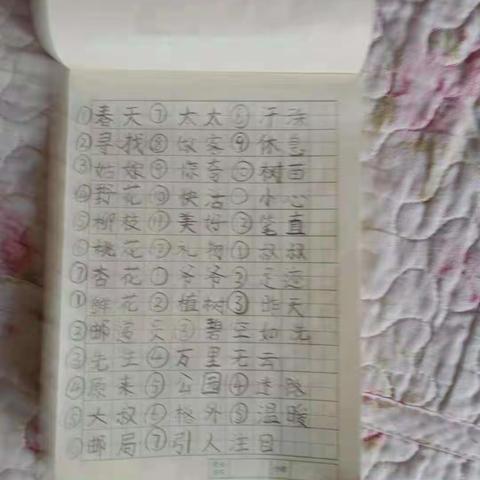 ①春天⑦太太
②寻找⑧
③姑娘⑨惊奇 树苗
④野花 快活 小心
⑤柳枝 美好③笔直
⑥桃花 礼物①叔叔
⑦杏花 爷爷
①鲜花②植树③昨天
②邮递员③碧空如洗
③先生④万里无云
④原来⑤公园④
⑤大叔⑥格外⑤温暖
⑥邮局⑦引人注目